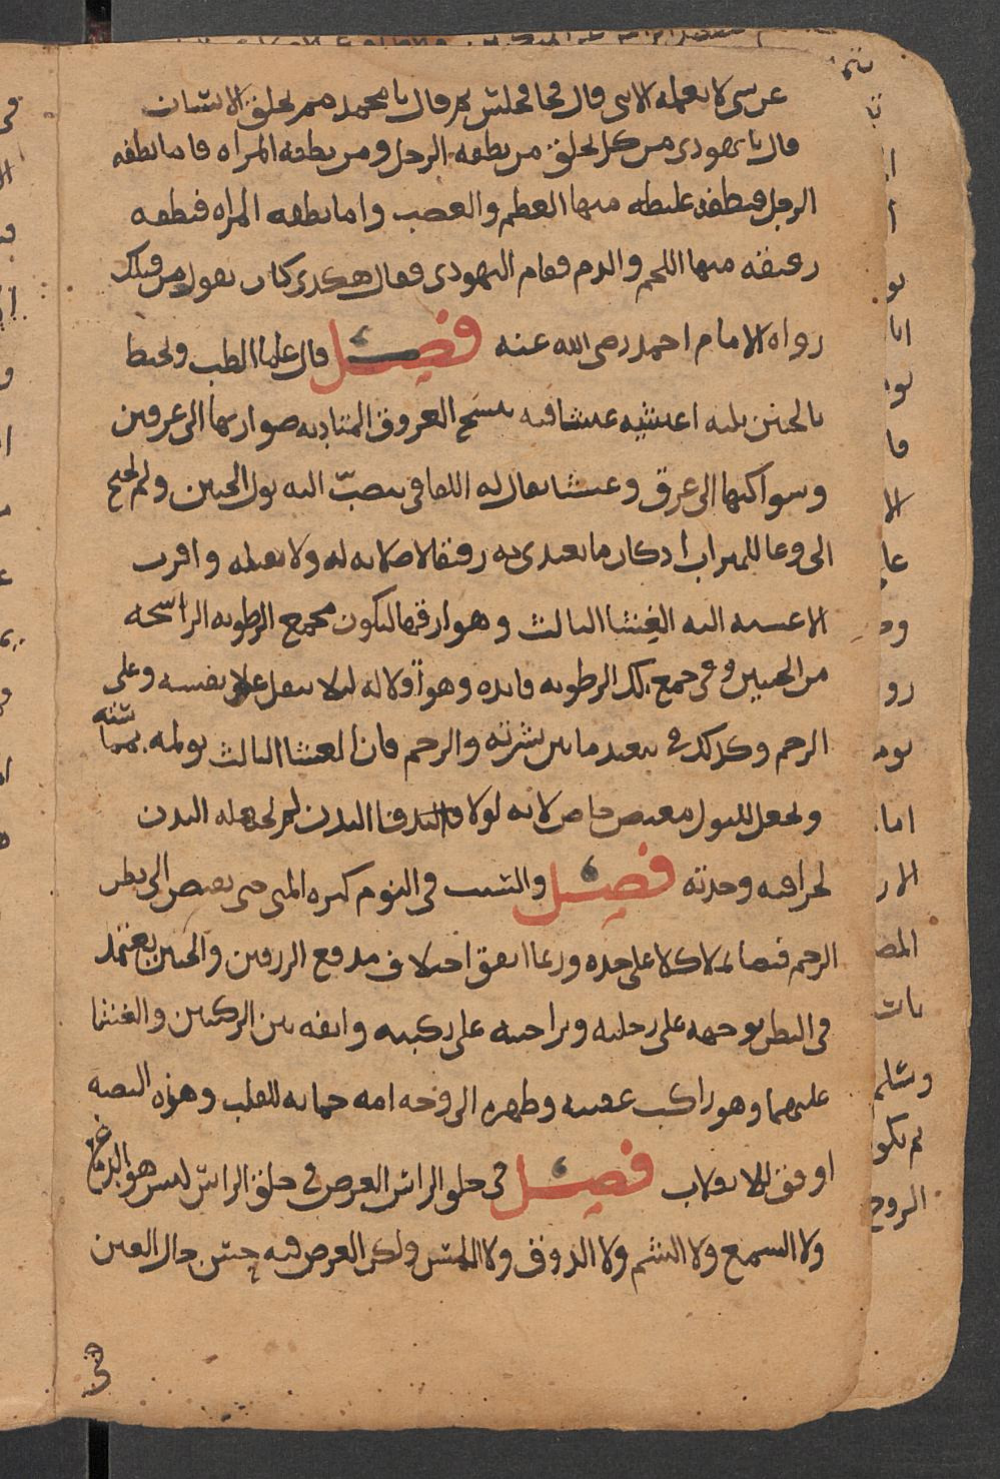 عن شى لا يعلمه الا نبى قال فجا فجلس ثم قال يا محمد مم يخلق الانسان
قال يا يهودى من كل يخلق من نطفه الرجل ومن نطفه المراه فاما نطفه
الرجل فنطفه غليظه منها العظم والعصب واما نطفه المراه فنطفه
رقيقه منها اللحم والدم فقام اليهودى فقال هكذى كان يقول من قبلك
رواه الامام احمد رضى الله عنه فصل قال علماء الطب ويحيط
بالجنين ثلثه اغشيه غشا فيه تنسج العروق المتاديه ضواربها الى عرقين
وسواكنها الى عرق وغشا يقال له اللفافى ينصب اليه بول الجنين ولم يحتج
الى وعا للبراز اذ كان ما يغتذى به رقيقا لا صلابه له ولا ثفل له واقرب
الاغشيه اليه الغشا الثالث وهو ارقها ليكون مجمع الرطوبه الراشحه
من الجنين وفى جمع تلك الرطوبه فايده وهو اقلاله ليلا يثقل على نفسه وعلى
الرحم وكذلك فى تبعيد ما بين بشرته والرحم فان الغشا الثالث يولمه بمماسته
ويجعل للبول مفيض خاص لانه لولا البدن لم يحتمله البدن
لحرافته وحدته فصل والسبب فى التوم كثره المنى حتى يفيض الى بطن
الرحم فيملا كلا على حده وربما اتفق اختلاف مدفع الزرقين والجنين يعتمد
فى البطن بوجهه على رجليه وبراحتيه على ركبتيه وانفه بين الركبتين والعينان
عليهما وهو راكب عقبيه وظهره الى وجه امه حمايه للقلب وهذه النصبه
اوفق للانقلاب فصل فى خلق الراس الغرض فى خلق الراس ليس هو الدماغ
ولا السمع ولا الشم ولا الذوق ولا اللمس ولكن الغرض فيه حسن حال العين
فى